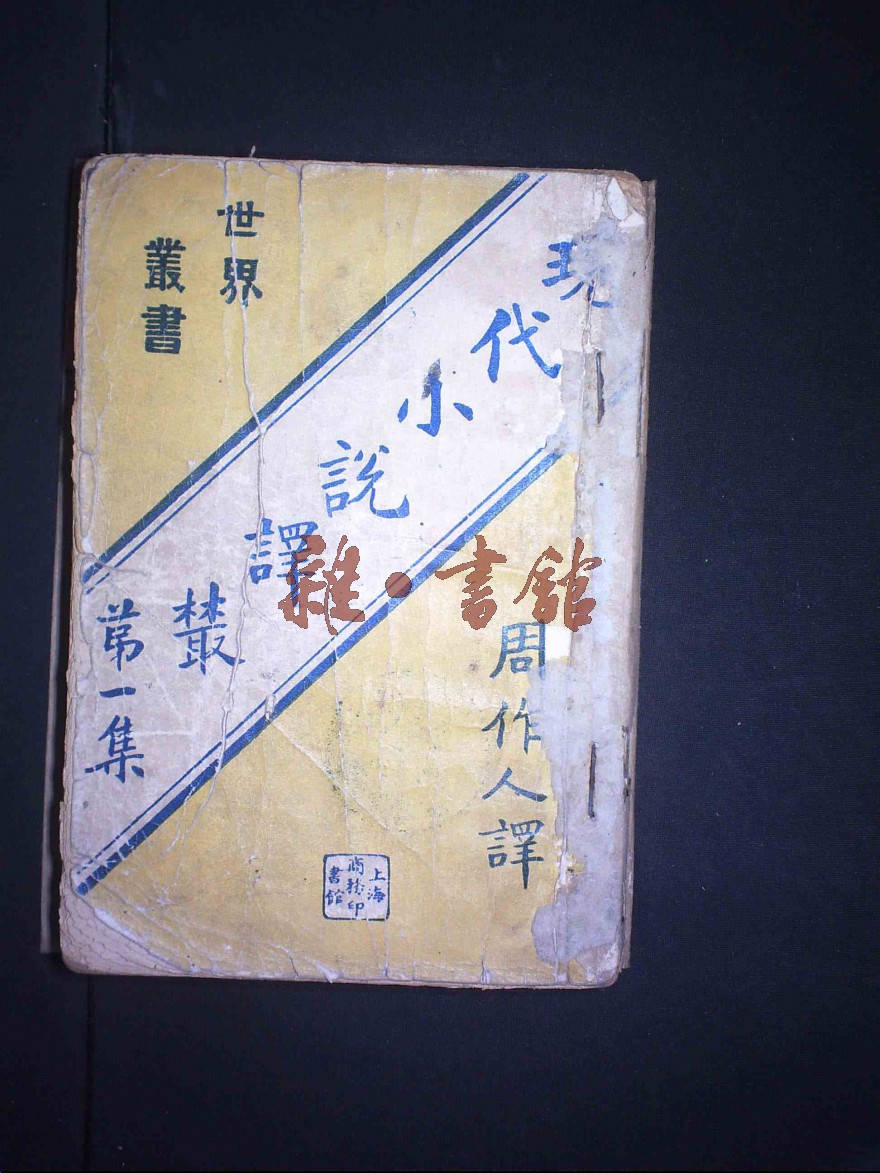 世界
叢書
現代小說譯叢
第一集
周作人譯
上海
商務印
書館
雜·書館